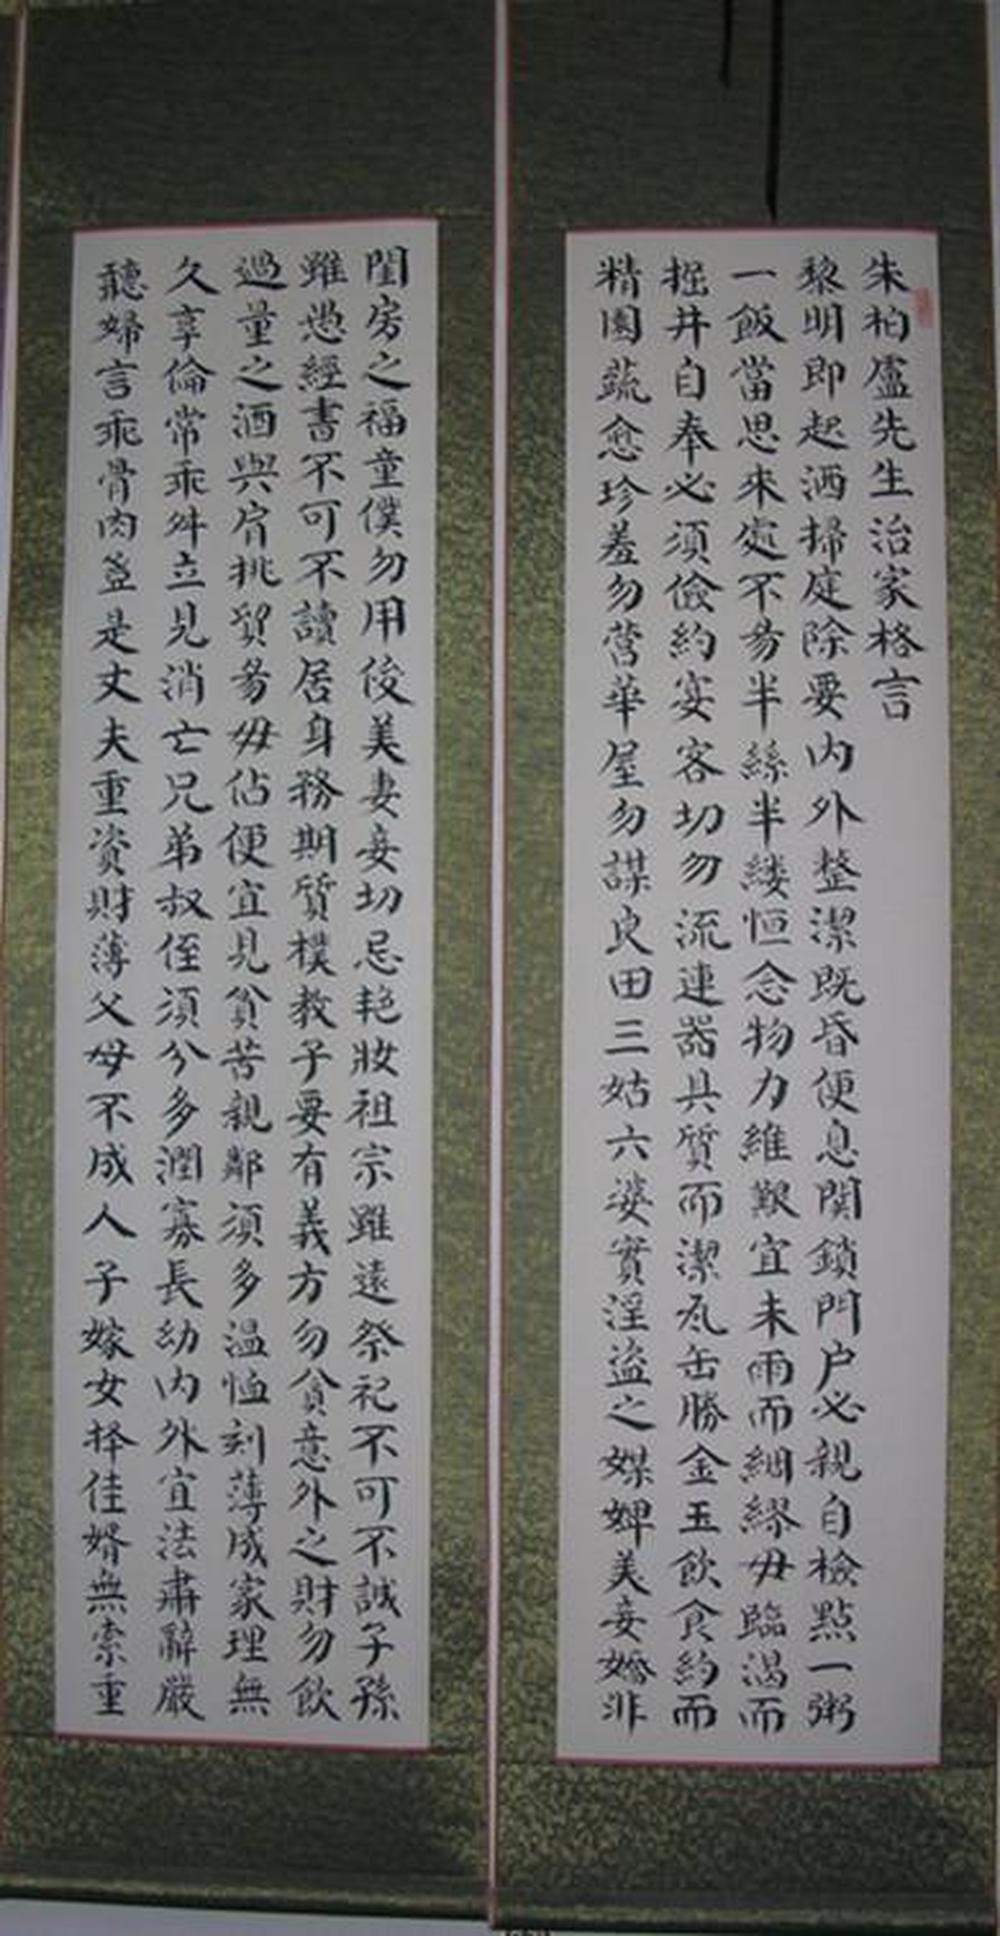 朱柏廬先生治家格言
黎明即起洒掃庭除要内外整潔既昏便息関鎖門户必親自檢點一粥
一飯當思來處不易半絲半縷恒念物力維艱宜未雨而綢繆毋臨渴而
掘井自奉必須儉約宴客切勿流連器具質而潔瓦缶勝金玉飲食約而
精園蔬愈珍羞勿營華屋勿謀良田三姑六婆實淫盗之媒婢美妾嬌非
閨房之福童僕勿用俊美妻妾切忌艳妝祖宗雖遠祭祀不可不誠子孫
雖愚經書不可不讀居身務期質樸教子要有義方勿貪意外之財勿飲
過量之酒與肩挑貿易毋佔便宜見貧苦親鄰須多温恤刻薄成家理無
久享倫常乖舛立見消亡兄弟叔侄須分多潤寡長幼内外宜法肅辭嚴
聽婦言乖骨肉豈是丈夫重資財薄父母不成人子嫁女择佳婿無索重